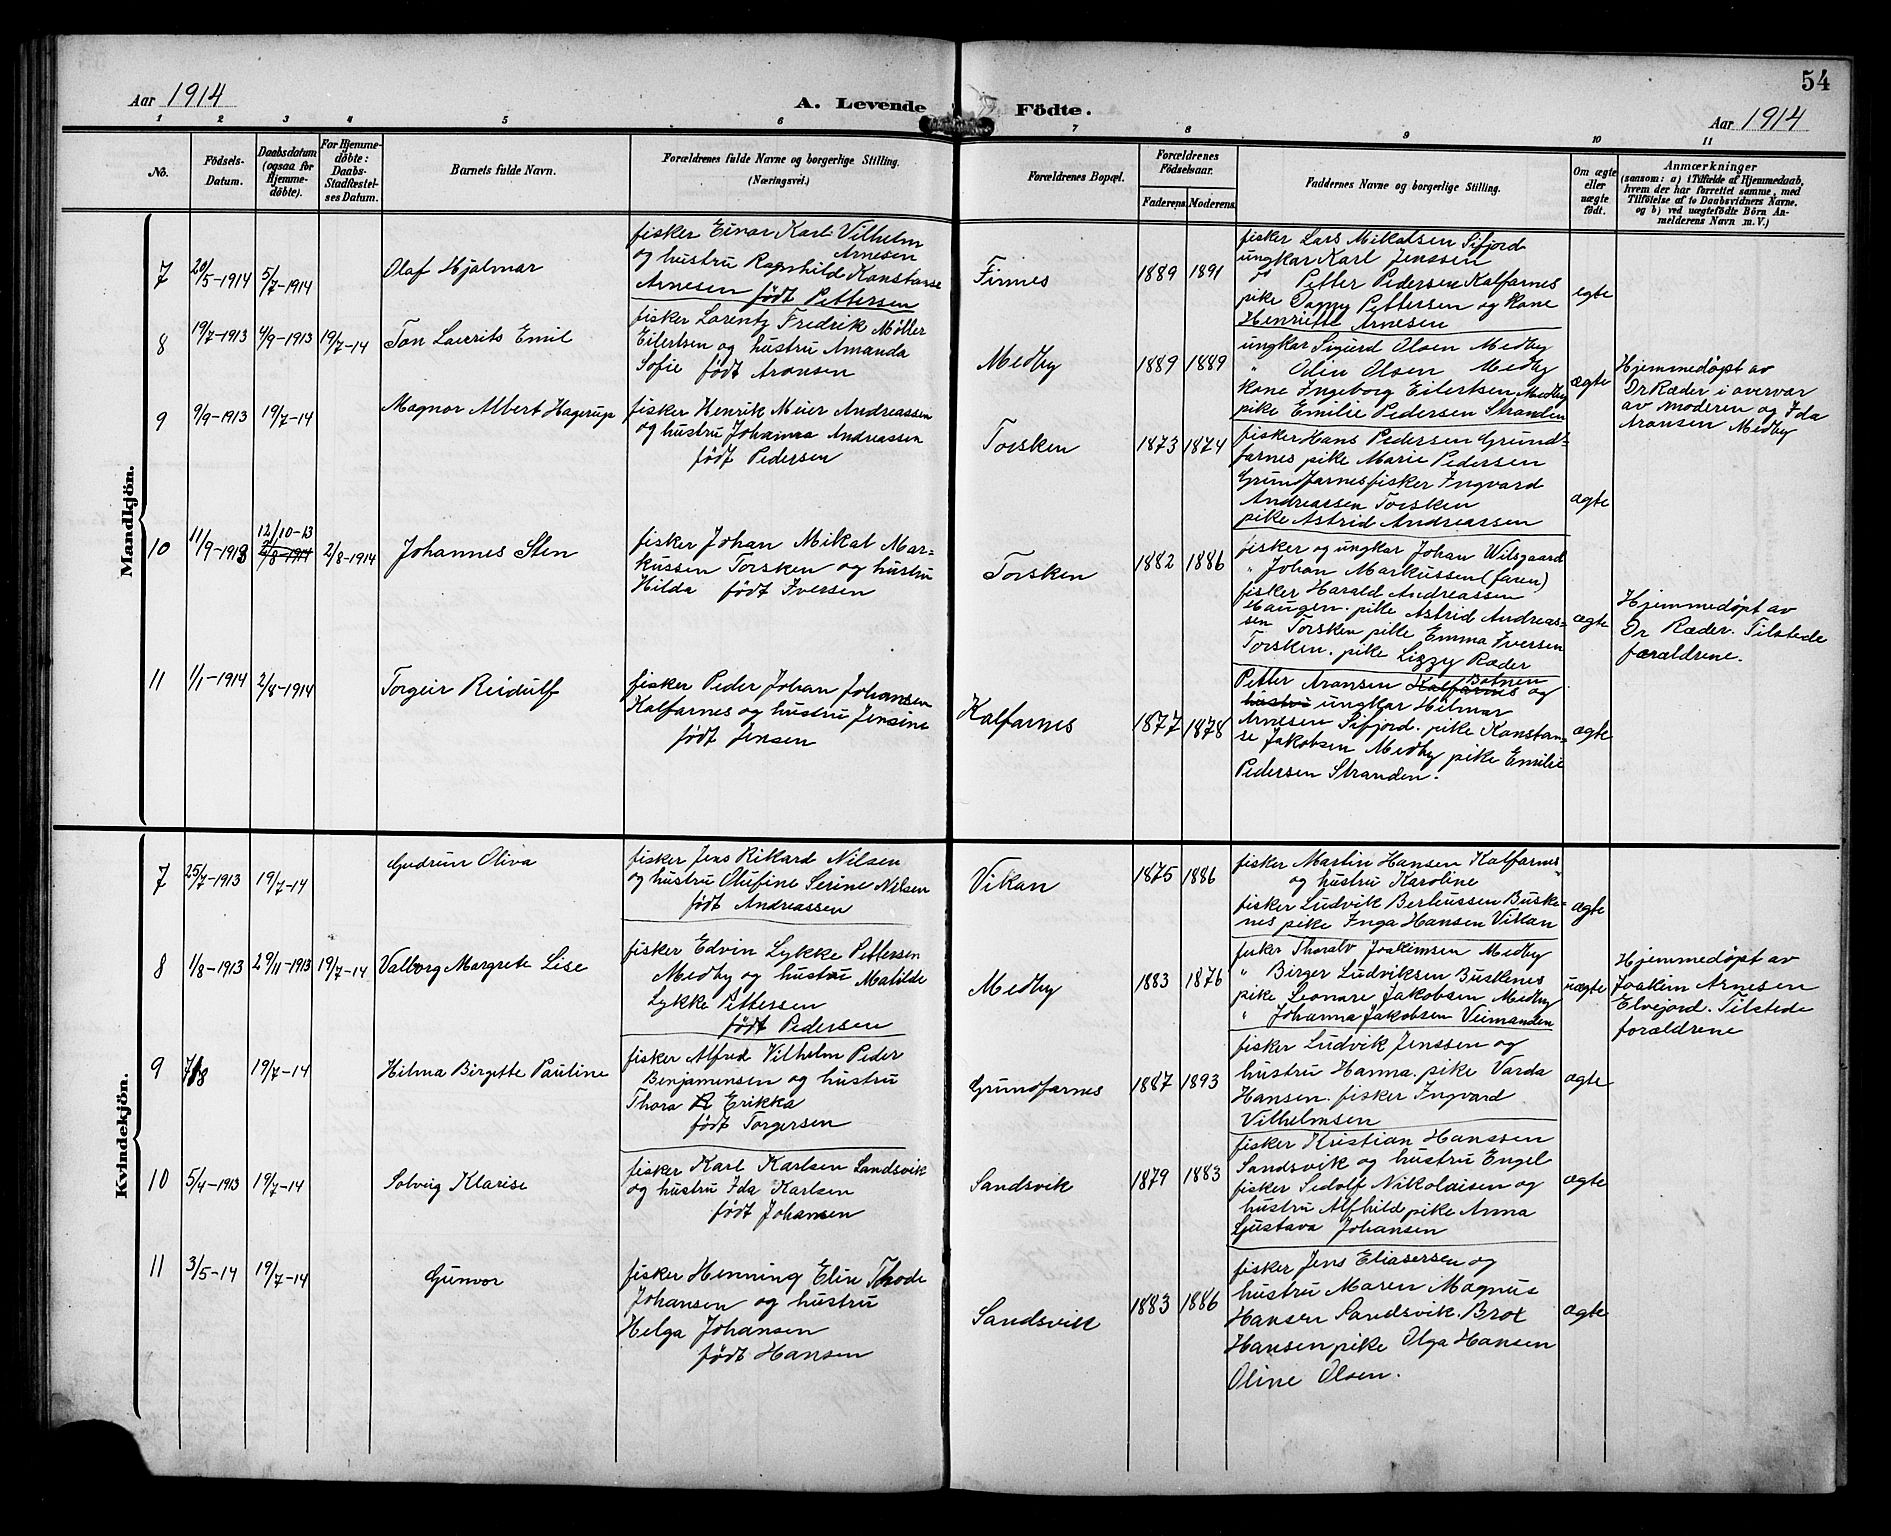 54
Aar 1914
A. Levende Födte.
Aar 1914
1 2 3 4 5 6 7 8 9 10 11
No.
Födsels-Datum.
Daabsdatum (ogsaa for Hjemmedöbte).
For Hjemmedöbte: Daabs-Stadfæstelses Datum.
Barnets fulde Navn.
Forældrenes fulde Navne og borgerlige Stilling. (Næringsvei.)
Forældrenes Bopæl.
Forældrenes Födselsaar.
Faderens. Moderens.
Faddernes Navne og borgerlige Stilling.
Om ægte eller uægte födt.
Anmærkninger
(saasom: a) i Tilfælde af Hjemmedaab, hvem der har forrettet samme, med Tilföielse af to Daabsvidners Navne. og b) ved uægtefödte Börn Anmelderens Navn m. V.)
Mandkjön.
7 20/5-1914 5/7-1914 Olaf Hjalmar
fisker Einar Karl Vilhelm
Arnesen
og hustru Ragnhilde Konstanse
Arnesen født Pettersen
Finnes 1889 1891
fisker Lars Mikalsen Sifjord
ungkar Karl Jenssen
" Petter Pedersen Kalfarnes
pike Dagny Pettersen og kone
Henriette Arnesen
egte
8 19/7-1913 4/9-1913 19/7-14 Ton Laurits Emil
fisker Lorentz Fredrik Møller
Eilertsen og hustru Amanda
Sofie født Aronsen
Medby 1889 1889
ungkar Sigurd Olsen Medby
" Odin Olsen Medby
kone Ingeborg Eilertsen Medby
pike Emilie Pedersen Stranden
ægte
Hjemmedøpt av
Dr Ræder i overvær
av moderen og Ida
Aronsen Medby
9 9/9-1913 19/7-14 Magnor Albert Hagerup
fisker Henrik Meier Andreassen
og hustru Johanna Andreassen
født Pedersen
Torsken 1873 1874
fisker Hans Pedersen Grund-
farnes pike Marie Pedersen
Grundfarnes fisker Ingvard
Andreassen Torsken
pike Astrid Andreassen
ægte
10 11/9-1913 12/10-13 2/8-1914 2/8-1914 Johannes Sten
fisker Johan Mikal Mar-
kussen Torsken og hustru
Hilda født Iversen
Torsken 1882 1886
fisker og ungkar Johan Wilsgaard
" Johan Markussen (faren)
fisker Harald Andreassen
Haugen. pike Astrid Andreas-
sen Torsken pike Emma Iversen
Torsken. pike Lizzy Ræder
ægte
Hjemmedøpt av
Dr Ræder. Tilstede
forældrene.
11 1/1-1914 2/8-1914 Torgeir Reidulf
fisker Peder Johan Johansen
Kalfarnes og hustru Jensine
født Jensen
Kalfarnes 1877 1878
Botnen
Petter Aronsen Kalfarnes og
hustru ungkar Hilmar
Arnesen Sifjord. pike Konstan-
se Jakobsen Medby pike Emilie
Pedersen Stranden.
ægte
Kvindekjön.
7 25/7-1913 19/7-14 Gudrun Oliva
fisker Jens Rikard Nilsen
og hustru Olufine Serine Nilsen
født Andreassen
Vikan 1875 1886
fisker Martin Hansen Kalfarnes
og hustru Karoline "
fisker Ludvik Berteussen Buske-
nes pike Inga Hansen Vikan
ægte
8 1/8-1913 29/11-1913 19/7-14 Valborg Margrete Lise
fisker Edvin Lykke Pettersen
Medby og hustru Matilde
Lykke Pettersen
født Pedersen
Medby 1883 1876
fisker Thoralv Joakimsen Medby
" Birger Ludviksen Buskenes
pike Leonare Jakobsen Medby
" Johanna Jakobsen Veimanden
uægte
Hjemmedøpt av
Joakim Arnesen
Elvejord. Tilstede
forældrene
9 19/7-14 Hilma Birgitte Pauline
fisker Alfred Vilhelm Peder
Benjaminsen og hustru
Thora Erikka
født Torgersen
Grundfarnes 1887 1893
fisker Ludvik Jenssen og
hustru Hanna. pike Varda
Hansen. fisker Ingvard
Vilhelmsen
ægte
10 5/4-1913 19/7-14 Solveig Klarise
fisker Karl Karlsen Sandsvik
og hustru Ida Karlsen
født Johansen
Sandsvik 1879 1883
fisker Kristian Hanssen
Sandsvik og hustru Engel
fisker Sedolf Nikolaisen og
hustru Alfhild pike Anna
Gustava Johansen
ægte
11 3/5-14 19/7-14 Gunvor
fisker Henning Elin Thode
Johansen og hustru
Helga Johansen
født Hansen
Sandsvik 1883 1886
fisker Jens Eliasersen og
hustru Maren Magnus
Hansen Sandsvik. Brox
Hansen pike Olga Hansen
Oline Olsen.
ægte